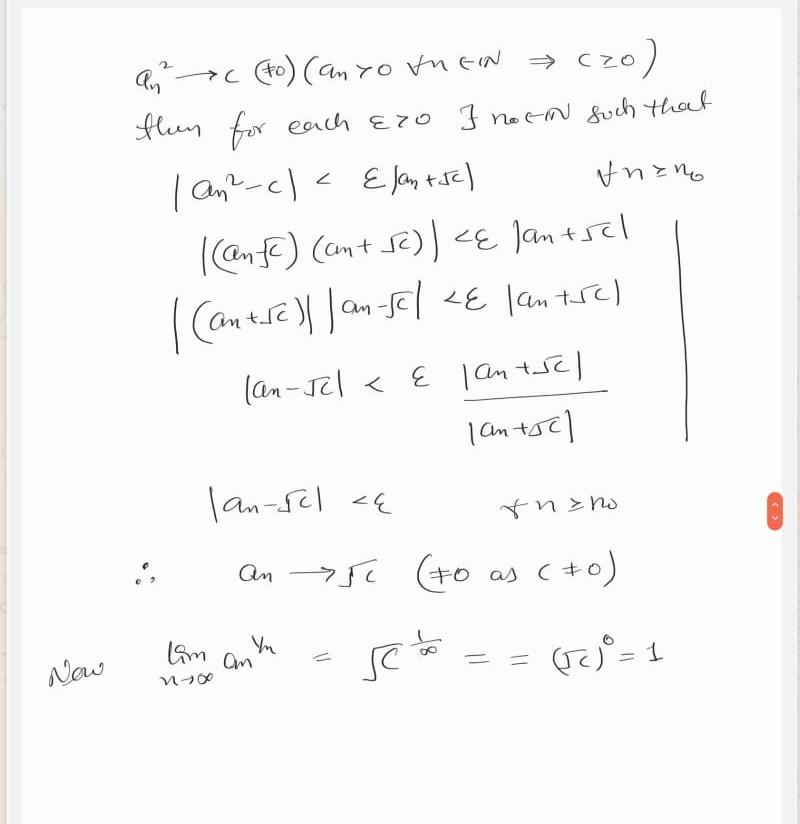 aₙ² → c (≠0) (aₙ > 0 ∀ n ∈ ℕ ⇒ c ≥ 0)
then for each ε > 0 ∃ n₀ ∈ ℕ such that
|aₙ² - c| < ε |aₙ + √c| ∀ n ≥ n₀
|(aₙ - √c) (aₙ + √c)| < ε |aₙ + √c|
|(aₙ + √c)| |aₙ - √c| < ε |aₙ + √c|
|aₙ - √c| < ε |aₙ + √c| / |aₙ + √c|
|aₙ - √c| < ε ∀ n ≥ n₀
∴ aₙ → √c (≠0 as c ≠ 0)
Now lim n→∞ aₙ^(1/n) = √c^(1/∞) = = (√c)⁰ = 1